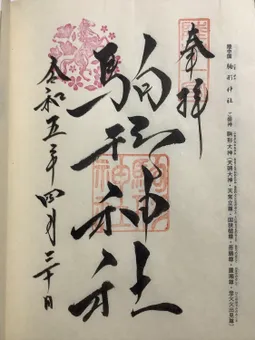 陸中國 駒形神社 ご祭神 駒形大神(天照大神・天常立尊・国狭槌尊・吾勝尊・置瀬尊・彦火火出見尊)
奉拝
駒形神社
駒形
神社
令和五年四月二十日